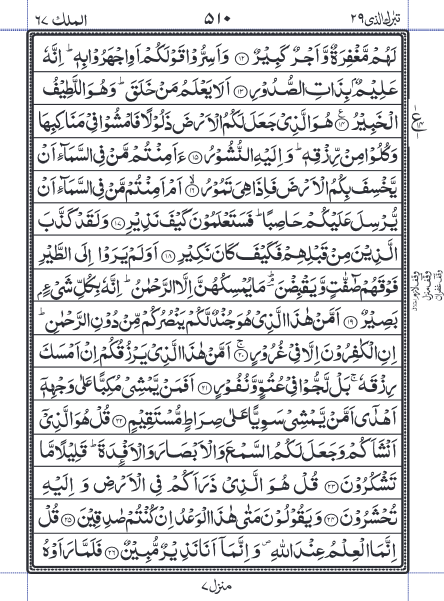 تبٰرك الذی ۲۹
۵۱۰
الملك ٦٧
لَهُمْ مَّغْفِرَةٌ وَّاَجْرٌ كَبِيْرٌ ۝۱۲ وَاَسِرُّوْا قَوْلَكُمْ اَوِ اجْهَرُوْا بِهٖ ؕ اِنَّهٗ
عَلِيْمٌۢ بِذَاتِ الصُّدُوْرِ ۝۱۳ اَلَا يَعْلَمُ مَنْ خَلَقَ ؕ وَهُوَ اللَّطِيْفُ
الْخَبِيْرُ ۝۱۴ هُوَ الَّذِیْ جَعَلَ لَكُمُ الْاَرْضَ ذَلُوْلًا فَامْشُوْا فِیْ مَنَاكِبِهَا
وَكُلُوْا مِنْ رِّزْقِهٖ ؕ وَاِلَيْهِ النُّشُوْرُ ۝۱۵ ءَاَمِنْتُمْ مَّنْ فِی السَّمَآءِ اَنْ
يَّخْسِفَ بِكُمُ الْاَرْضَ فَاِذَا هِیَ تَمُوْرُ ۝۱۶ اَمْ اَمِنْتُمْ مَّنْ فِی السَّمَآءِ اَنْ
يُّرْسِلَ عَلَيْكُمْ حَاصِبًا ؕ فَسَتَعْلَمُوْنَ كَيْفَ نَذِيْرِ ۝۱۷ وَلَقَدْ كَذَّبَ
الَّذِيْنَ مِنْ قَبْلِهِمْ فَكَيْفَ كَانَ نَكِيْرِ ۝۱۸ اَوَلَمْ يَرَوْا اِلَی الطَّيْرِ
فَوْقَهُمْ صٰٓفّٰتٍ وَّيَقْبِضْنَ ؔۘؕ مَا يُمْسِكُهُنَّ اِلَّا الرَّحْمٰنُ ؕ اِنَّهٗ بِكُلِّ شَیْءٍۭ
بَصِيْرٌ ۝۱۹ اَمَّنْ هٰذَا الَّذِیْ هُوَ جُنْدٌ لَّكُمْ يَنْصُرُكُمْ مِّنْ دُوْنِ الرَّحْمٰنِ ؕ
اِنِ الْكٰفِرُوْنَ اِلَّا فِیْ غُرُوْرٍ ۝۲۰ اَمَّنْ هٰذَا الَّذِیْ يَرْزُقُكُمْ اِنْ اَمْسَكَ
رِزْقَهٗ ۚ بَلْ لَّجُّوْا فِیْ عُتُوٍّ وَّنُفُوْرٍ ۝۲۱ اَفَمَنْ يَّمْشِیْ مُكِبًّا عَلٰی وَجْهِهٖٓ
اَهْدٰٓی اَمَّنْ يَّمْشِیْ سَوِيًّا عَلٰی صِرَاطٍ مُّسْتَقِيْمٍ ۝۲۲ قُلْ هُوَ الَّذِیْٓ
اَنْشَاَكُمْ وَجَعَلَ لَكُمُ السَّمْعَ وَالْاَبْصَارَ وَالْاَفْـِٕدَةَ ؕ قَلِيْلًا مَّا
تَشْكُرُوْنَ ۝۲۳ قُلْ هُوَ الَّذِیْ ذَرَاَكُمْ فِی الْاَرْضِ وَاِلَيْهِ
تُحْشَرُوْنَ ۝۲۴ وَيَقُوْلُوْنَ مَتٰی هٰذَا الْوَعْدُ اِنْ كُنْتُمْ صٰدِقِيْنَ ۝۲۵ قُلْ
اِنَّمَا الْعِلْمُ عِنْدَ اللّٰهِ ۪ وَاِنَّمَآ اَنَا نَذِيْرٌ مُّبِيْنٌ ۝۲۶ فَلَمَّا رَاَوْهُ
منزل ۷